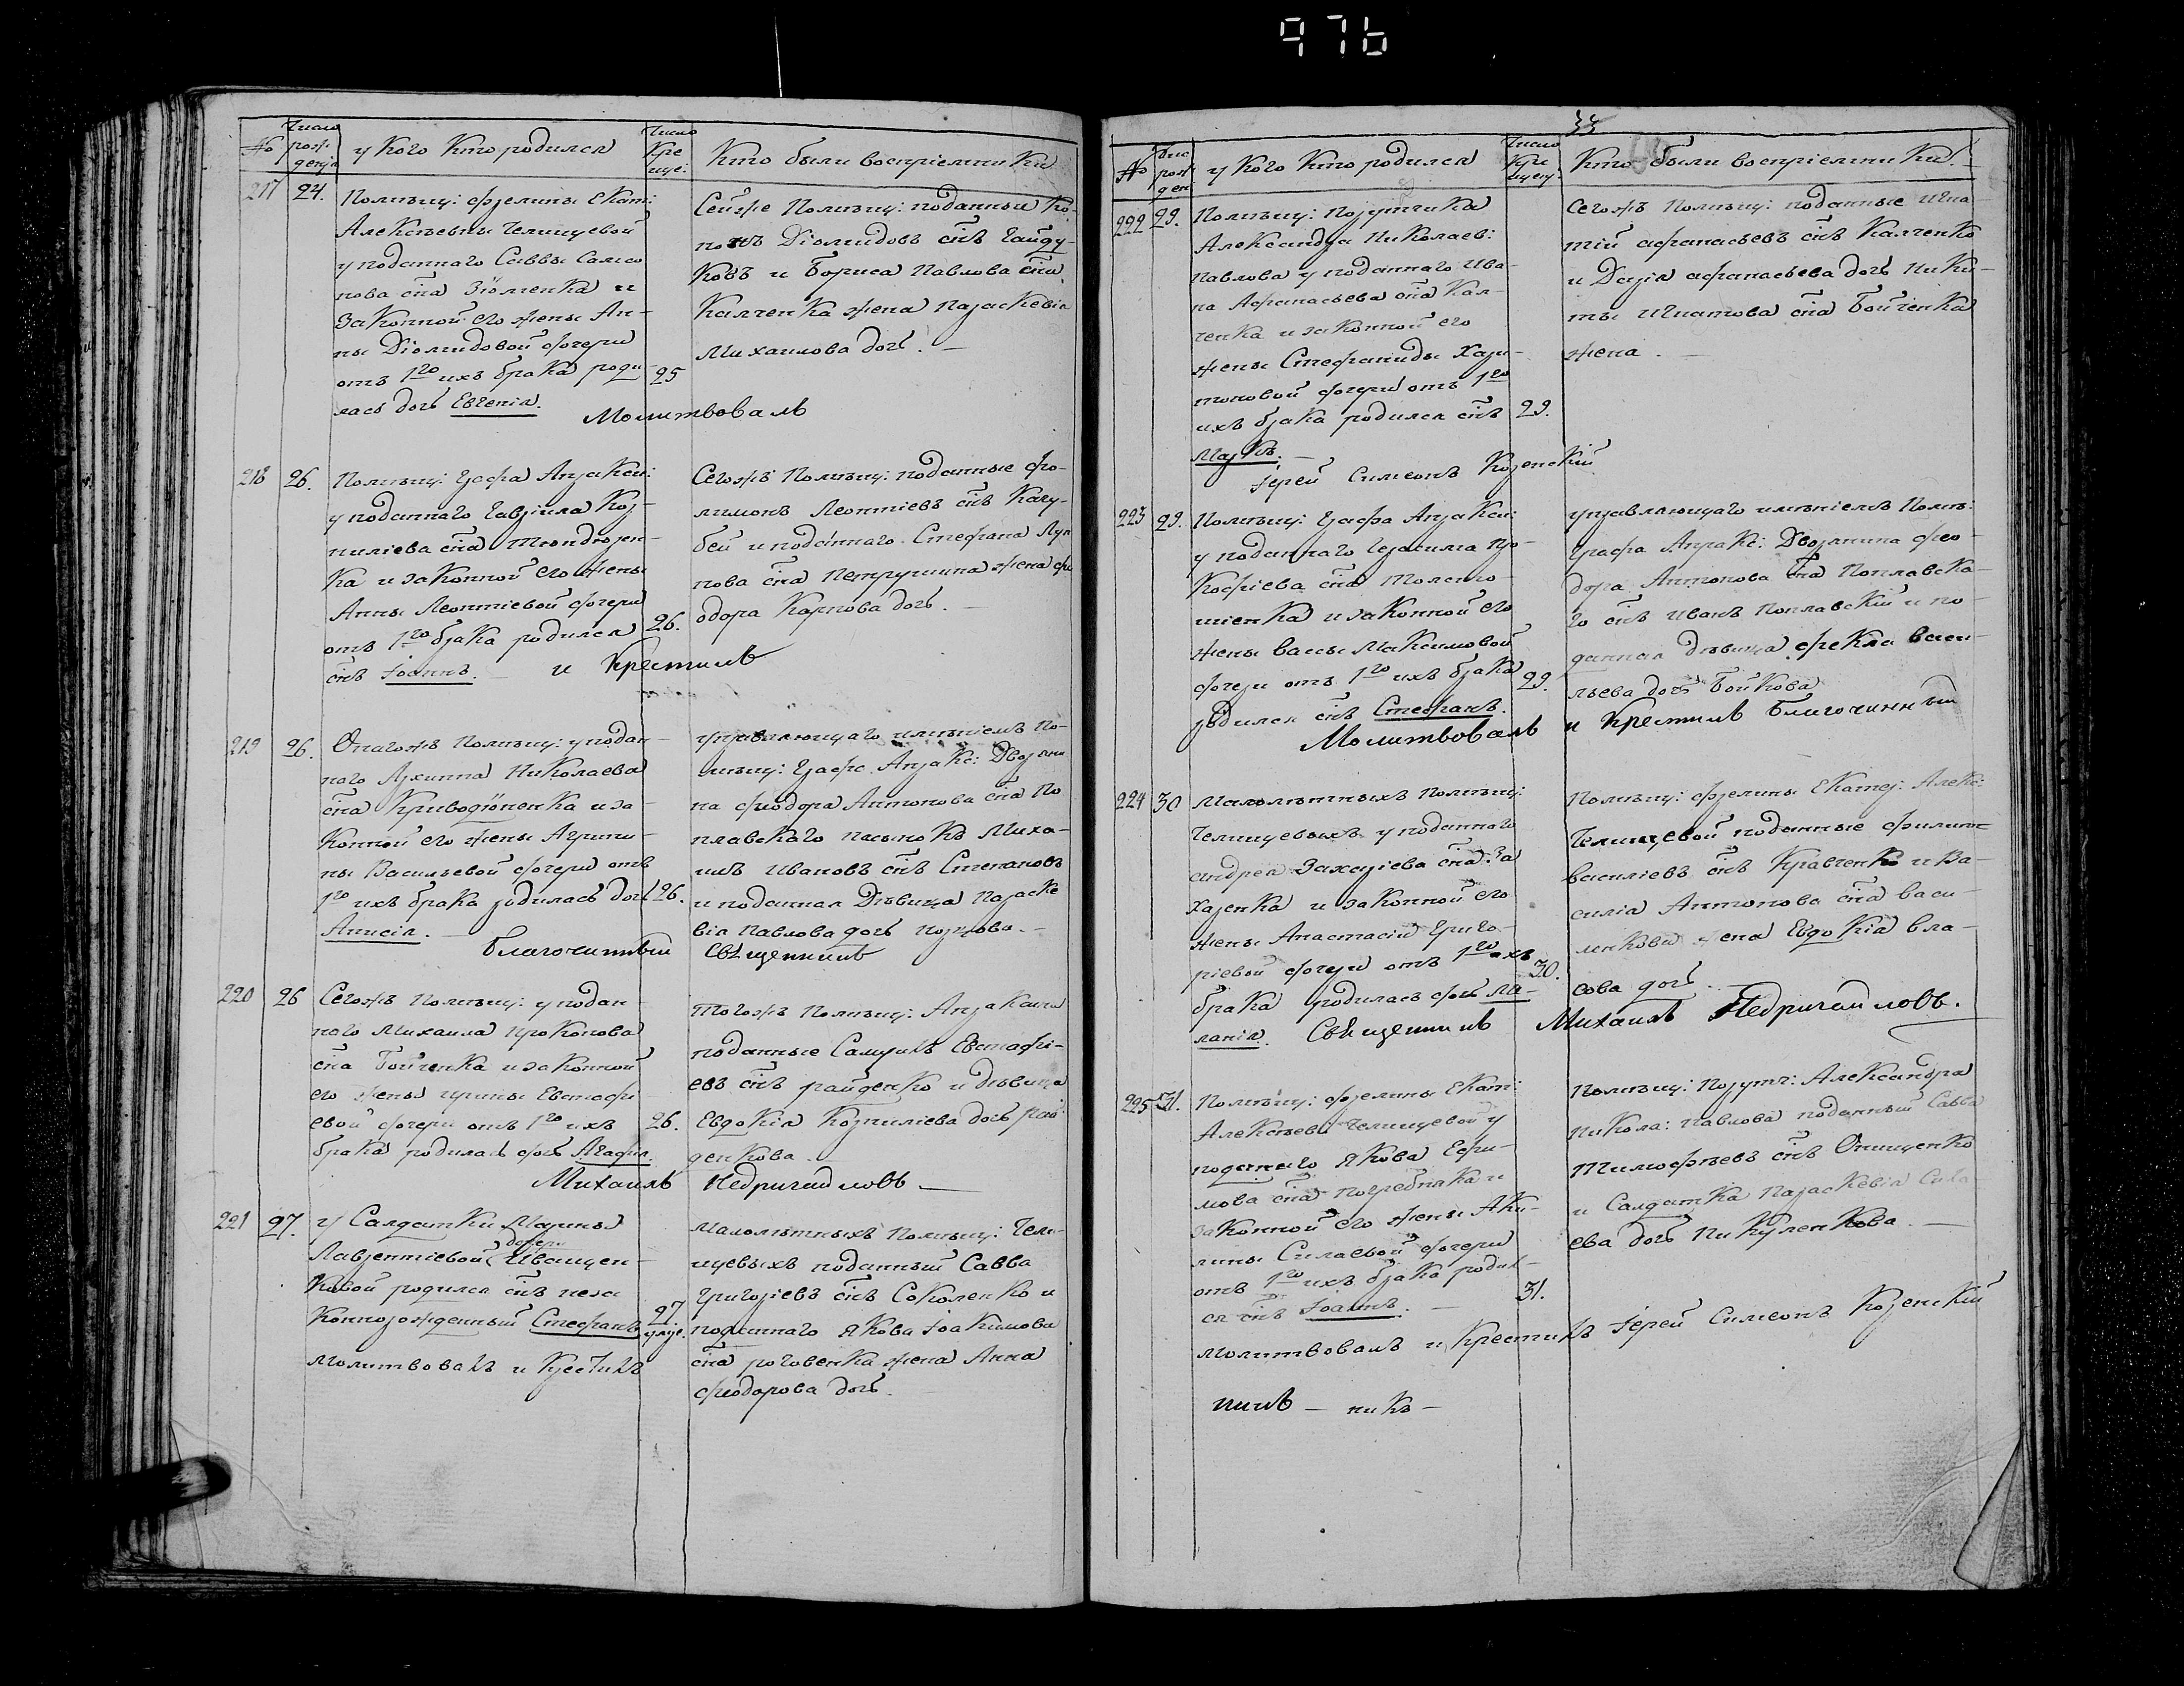 976
№
Число
рож
денія
у Кого Кто родился
Число
Кре
ще:
Кто были воспріемники
217
24.
Помѣщ: фрелины Екат:
Алексѣевны Челищевой
у поданнаго Саввы Самсо
нова сна Зюмченка и
законной его жены Ан-
ны Діомидовой дочери
отъ 1го ихъ брака роди
лась дочь Евгенія.
25
Сейже Помѣщ: поданныи Ко-
нонъ Діомидовъ снъ Гайду-
ковъ и Бориса Павлова сна
Калченка жена Параскевія
Михаилова дочь. —
Молитвовалъ
218
26.
Помѣщ: Графа Апракси:
у поданнаго Гавріила Кор-
ниліева сна
ка и законной его жены
Анны Леонтіевой дочери
отъ 1го брака родился
снъ Іоаннъ. —
26.
Сегожъ Помѣщ: поданные Фи-
лимонъ Леонтіевъ снъ Качу-
бей и поданнаго Стефана Луп
пова сна Петрушина жена Фе
одора Карпова дочь. —
и Крестилъ
219
26.
Онагожъ Помѣщ: у подан-
наго Архиппа Николаева
сна Криводюненка и за-
конной его жены Агрипи-
ны Васильевой дочери отъ
1го ихъ брака родилась дочь
Анисія. —
26.
управляющаго имѣніемъ По-
мѣщ: Графа Апракс: Дворяни
на Феодора Антонова сна По
плавскаго пасынокъ Миха-
илъ Ивановъ снъ Степановъ
и поданная Дѣвица Параске
вія Павлова дочь —
Благочинный Священникъ
220
26
Сегожъ Помѣщ: у подан-
наго Михаила Прокопова
сна Бойченка и законной
его жены Ирины Евстафі
евой дочери отъ 1го ихъ
брака родилась дочь Агафія.
26.
Тогожъ Помѣщ: Апраксина
поданные Самуилъ Евстафі-
евъ снъ Райденко и дѣвица
Евдокія Корниліева дочь Рай
денкова —
Михаилъ Недригайловъ —
221
27.
у Салдатки Марины
Лаврентіевой дочери Иващен-
ковой родился снъ неза
коннорожденный Стефанъ
27
Малолѣтныхъ Помѣщ: Чели-
щевыхъ поданный Савва
Григоріевъ снъ Соколенко и
поданнаго Якова Іоакимова
сна Роговенка жена Анна
Феодорова дочь.
Молитвовалъ и Крестилъ
33
№
Чис
рож
ден
у Кого Кто родился
Число
Кре
щен:
Кто были воспріемники. —
222
29.
Помѣщ: Порутчика
Александра Николаев:
Павлова у поданнаго Ива-
на Афанасьева сна Кал-
ченка и законной его
жены Стефаниды Хари-
тоновой дочери отъ 1го
ихъ брака родился снъ
Маркъ. —
29.
Сегожъ Помѣщ: поданные Игна-
тій Афанасьевъ снъ Калченко
и Дарія Афанасьева дочь Ники-
ты Игнатова сна Бойченка
жена. —
Іерей Симеонъ Козенскій
223
29.
Помѣщ: Графа Апракси:
у поданнаго Герасима Про-
кофіева сна
и законной его
жены Вассы Максимовой
дочери отъ 1го ихъ брака
родился снъ Стефанъ.
29.
управляющаго имѣніемъ Помѣ:
Графа Апракс: Дворянина Фео-
дора Антонова сна Поплавска-
го снъ Иванъ Поплавскій и по-
данная дѣвица Фекла Васи-
льева дочь Бойкова
Молитвовалъ и Крестилъ Благочинный
224
30
Малолѣтныхъ Помѣщ:
Челищевыхъ у поданнаго
Андрея Захаріева сна За
харенка и законной его
жены Анастасіи Григо-
ріевой дочери отъ 1го ихъ
брака родилась дочь Ма-
ланія.
30.
Помѣщ: фрелины Екатер: Алекс:
Челищевой поданные Филипъ
Василіевъ снъ Кравченко и Ва-
силія Антонова сна Васи-
ленкова жена Евдокія Вла-
сова дочь. —
Священникъ Михаилъ Недригайловъ.
225
31.
Помѣщ: фрелины Екат:
Алексѣев: Челищевой у
поданнаго Якова Ефи-
мова сна Погребняка и
законной его жены Аки-
лины Силаевой дочери
отъ 1го ихъ брака родил-
ся снъ Іоаннъ. —
31.
Помѣщ: Порутч: Александра
Никола: Павлова поданный Савва
Тимофѣевъ снъ Онищенко
и Салдатка Параскевія Сила-
ева дочь Никуленкова. —
Молитвовалъ и Крестилъ Іерей Симеонъ Козенскій
никъ — никъ —